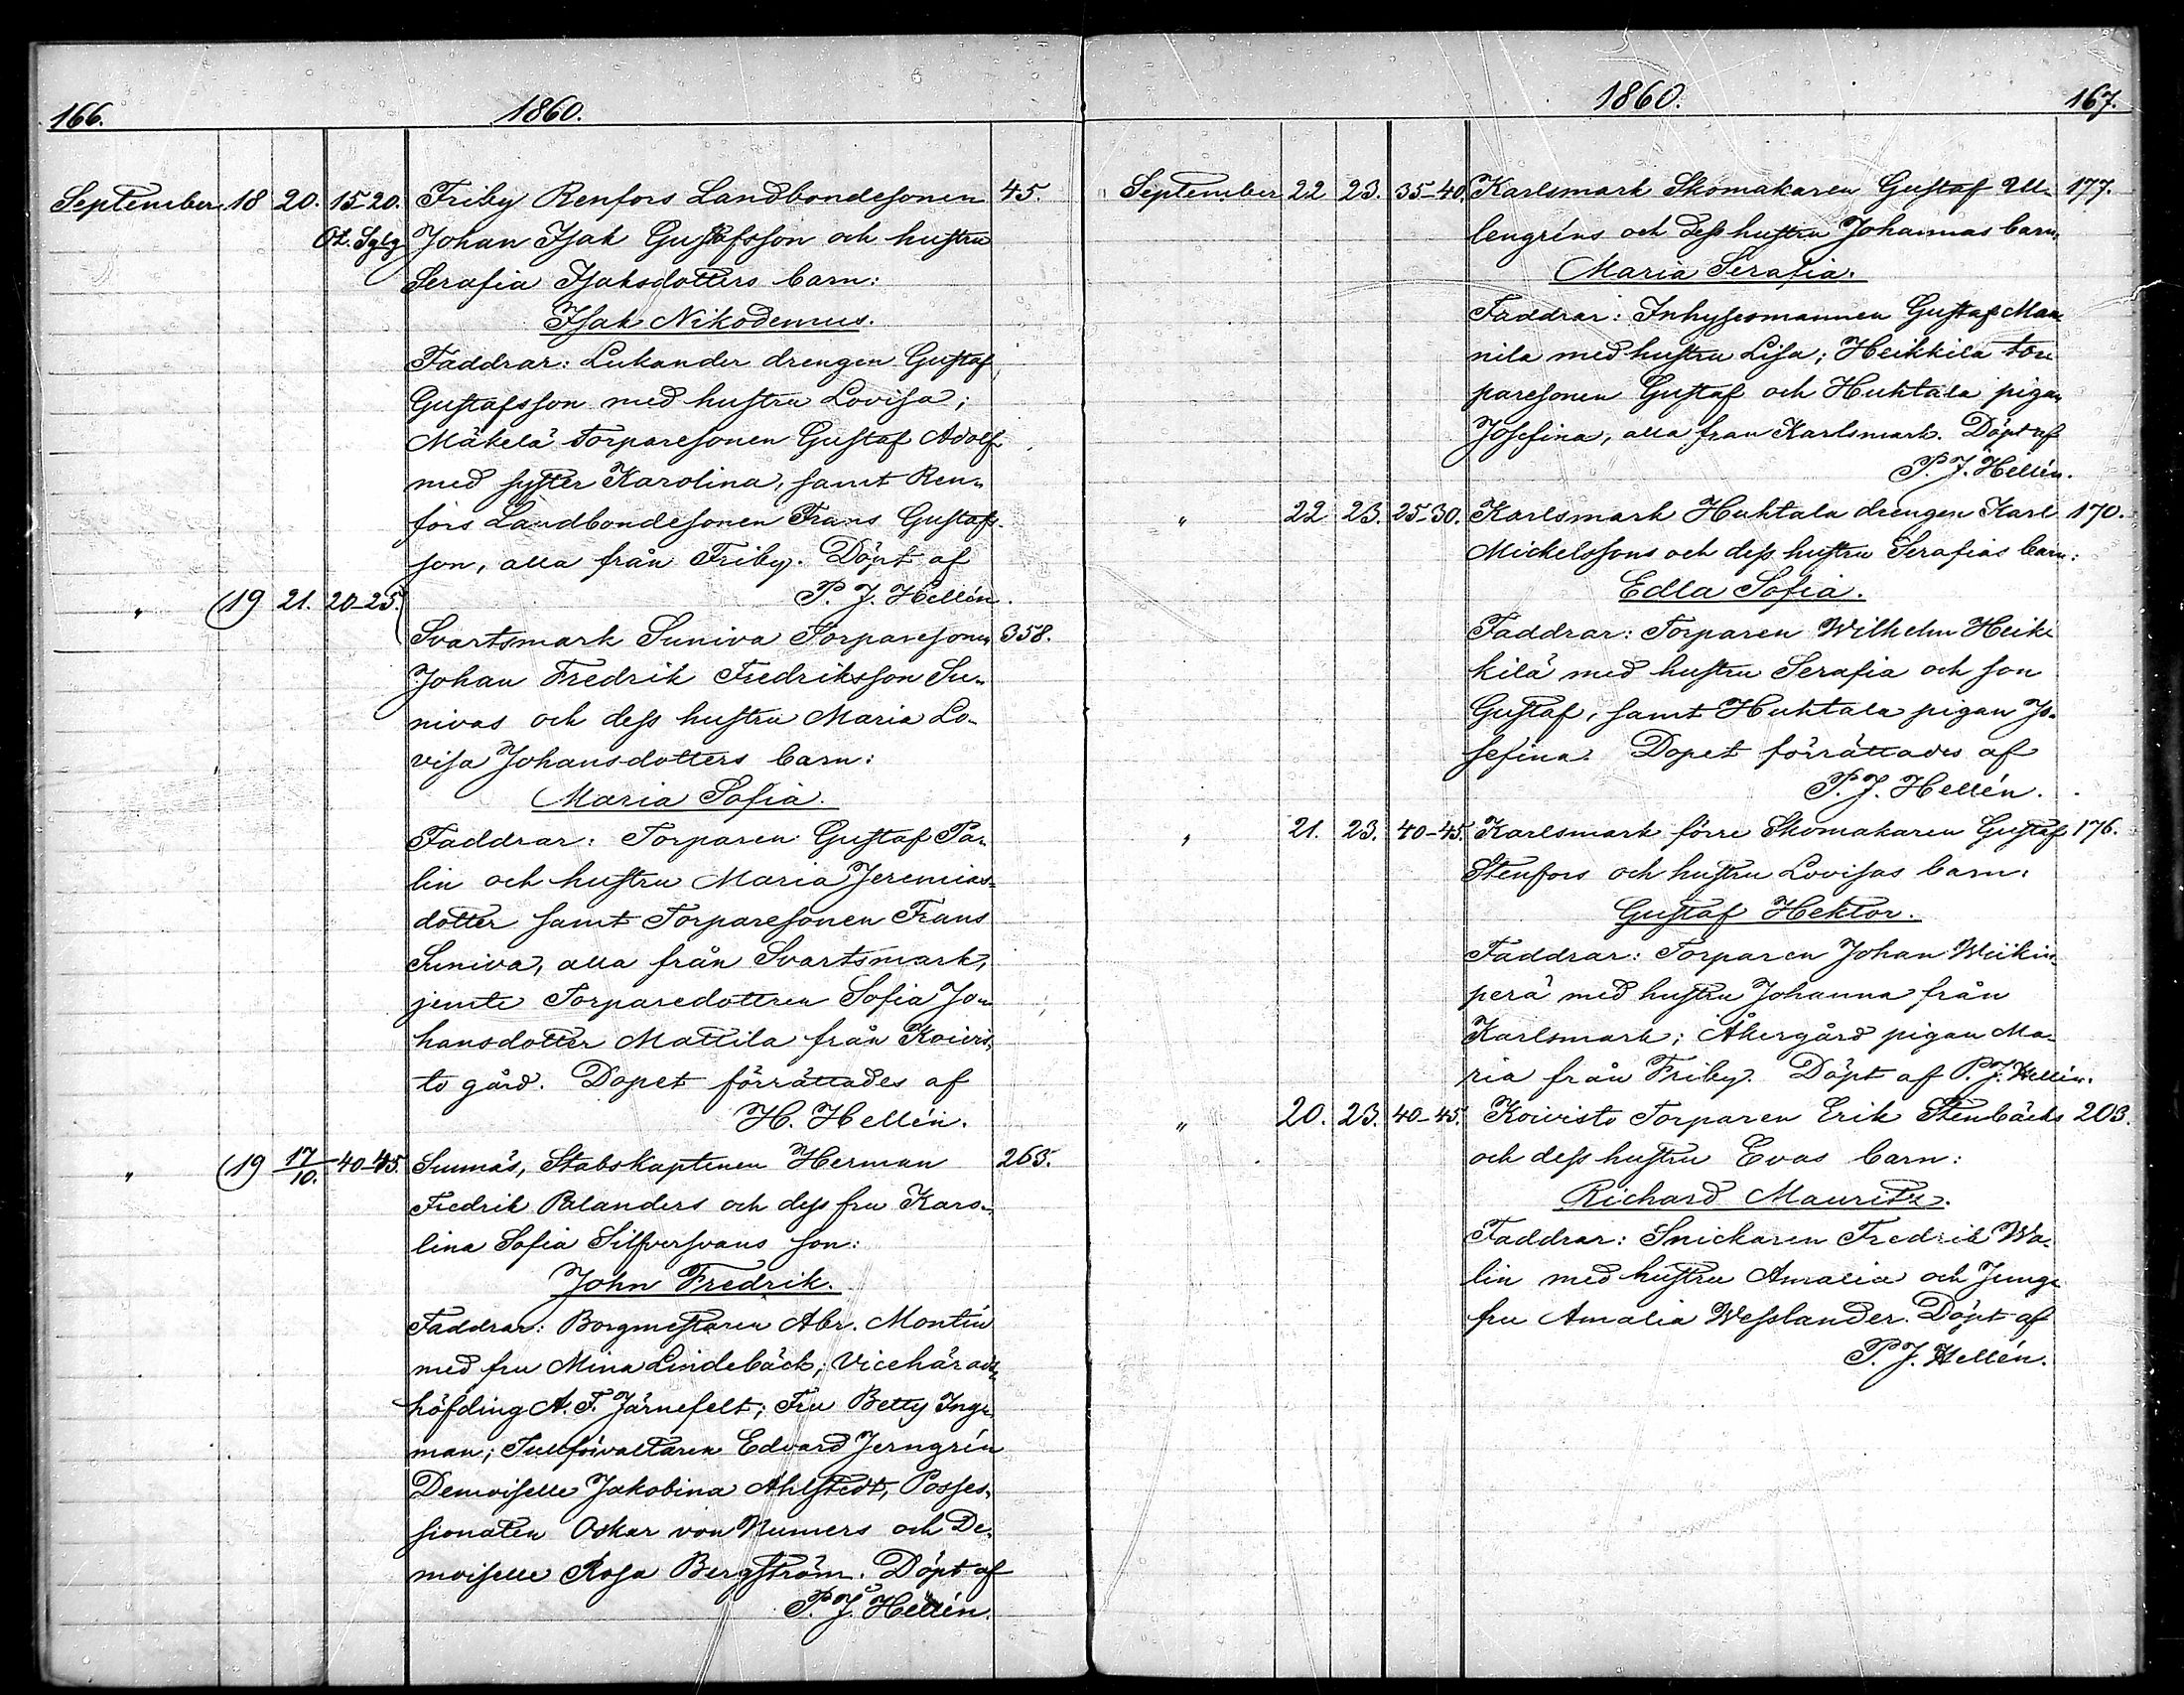 166. 1860.
September 18 20. 15-20. Friby Renfors Landbondesonen 45.
Ot. Sglg Johan Isak Gustafsson och hustru
Serafia Isaksdotters barn:
Isak Nikodemus.
Faddrar: Lukander drengen Gustaf
Gustafsson med hustru Lovisa;
Mäkelä Torparesonen Gustaf Adolf
med syster Karolina, samt Ren-
fors Landbondesonen Frans Gustafs-
son, alla från Friby. Döpt af
" 19 21. 20-25. P. J. Hellén.
Svartsmark Suniva Torparesonen 358.
Johan Fredrik Fredriksson Su-
nivas och dess hustru Maria Lo-
visa Johansdotters barn:
Maria Sofia.
Faddrar: Torparen Gustaf Pa-
lin och hustru Maria Jeremias-
dotter samt Torparesonen Frans
Suniva, alla från Svartsmark,
jemte Torparedottren Sofia Jo-
hansdotter Mattila från Koivis-
to gård. Dopet förrättades af
H. Hellén.
" 19 17/10. 40-45. Sunnäs, Stabskaptenen Herman 265.
Fredrik Relanders och dess fru Karo-
lina Sofia Silfversvans son:
John Fredrik.
Faddrar: Borgmestaren Abr. Montin
med fru Mina Lindebäck; Vicehärads-
höfding A. F. Järnefelt; Fru Betty Inge-
man; Tullförvaltaren Edvard Jerngrén
Demoiselle Jakobina Ahlstedt, Posses-
sionaten Oskar von Numers och De-
moiselle Rosa Bergström. Döpt af
P. J. Hellén.
1860. 167.
September 22 23. 35-40. Karlsmark Skomakaren Gustaf Ul- 177.
lengréns och dess hustru Johannas barn:
Maria Serafia.
Faddrar: Inhysesmannen Gustaf Man-
nila med hustru Lisa; Heikkilä tor-
paresonen Gustaf och Huhtala pigan
Josefina, alla fran Karlsmark. Döpt af
P. J. Hellén.
" 22 23. 25-30. Karlsmark Huhtala drengen Karl 170.
Mickelssons och dess hustru Serafias barn:
Edla Sofia.
Faddrar: Torparen Wilhelm Heik-
kilä med hustru Serafia och son
Gustaf, samt Huhtala pigan Jo-
sefina. Dopet förrättades af
P. J. Hellén.
" 21. 23. 40-45. Karlsmark förre Skomakaren Gustaf 176.
Stenfors och hustru Lovisas barn:
Gustaf Hektor.
Faddrar: Torparen Johan Wiikin-
perä med hustru Johanna från
Karlsmark; Åkergård pigan Ma-
ria från Friby. Döpt af P. J. Hellén.
" 20. 23. 40-45. Koivisto Torparen Erik Stenbäcks 203.
och dess hustru Evas barn:
Richard Mauritz.
Faddrar: Snickaren Fredrik Wa-
lin med hustru Amalia och Jung-
fru Amalia Wesslander. Döpt af
P. J. Hellén.